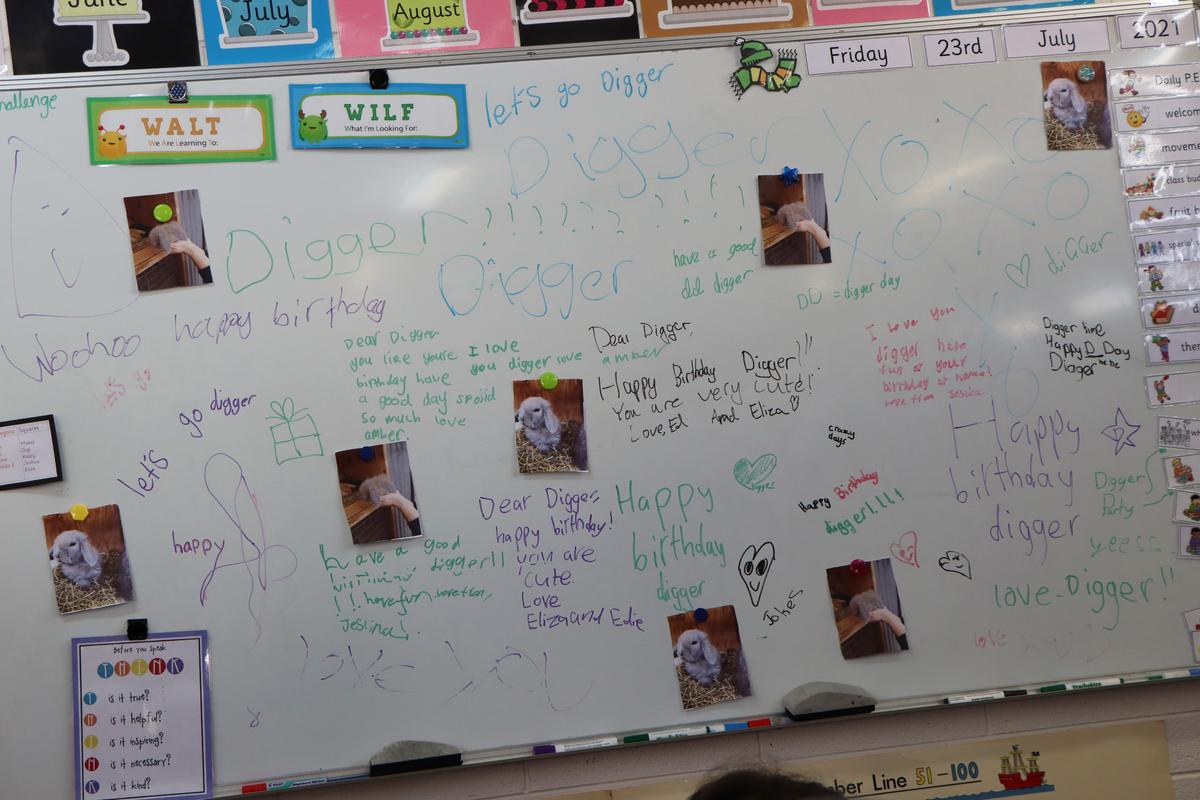 June
July
August
Friday
23rd
July
2021
WALT
We Are Learning To:
WILF
What I'm Looking For:
let's go Digger
Digger XOXO
Digger
Digger
XOXO
have a good
DD digger
DD = digger day
digger
Woohoo happy birthday
Dear Digger
birthday have
a good day
so much love
amber
I love
you digger love
amber
Dear Digger,
Happy Birthday Digger!!
You are very cute!
Love, Ed And Eliza
I love you
digger have
fun at your
birthday at home!
love from
Digger time
Happy D Day
Digger he he
go digger
let's
happy
crazy
days
Happy Birthday
digger!!!!
Happy
birthday
digger
Digger
Party
yeess
love Digger!!
love
Dear Digger,
happy birthday!
you are
cute.
Love
Eliza and Edie
Happy
birthday
digger
Jokes
have a good
digger!!
have fun. love from,
love you
Daily P.E
welcom
moveme
class bud
fruit b
special
Before you Speak
THINK
T is it true?
H is it helpful?
I is it inspiring?
N is it necessary?
K is it kind?
ber Line 51-100